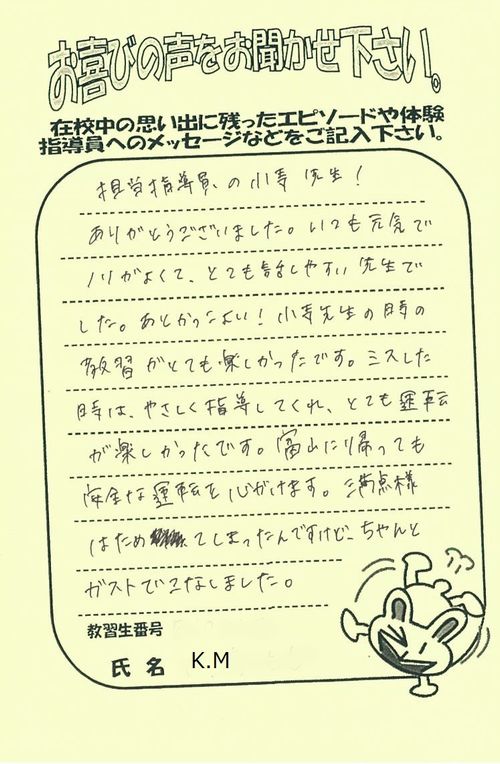 お喜びの声をお聞かせ下さい。
在校中の思い出に残ったエピソードや体験
指導員へのメッセージなどをご記入下さい。
担当指導員の小麦先生！
ありがとうございました。いつも元気で
ノリがよくて、とても話しやすい先生で
した。あとかっこよい！小麦先生の時の
教習がとても楽しかったです。ミスした
時は、やさしく指導してくれ、とても運転
が楽しかったです。富山に帰っても
安全な運転を心がけます。満点様
はためてしまったんですけど、ちゃんと
ガストでこなしました。
教習生番号
氏名 K.M